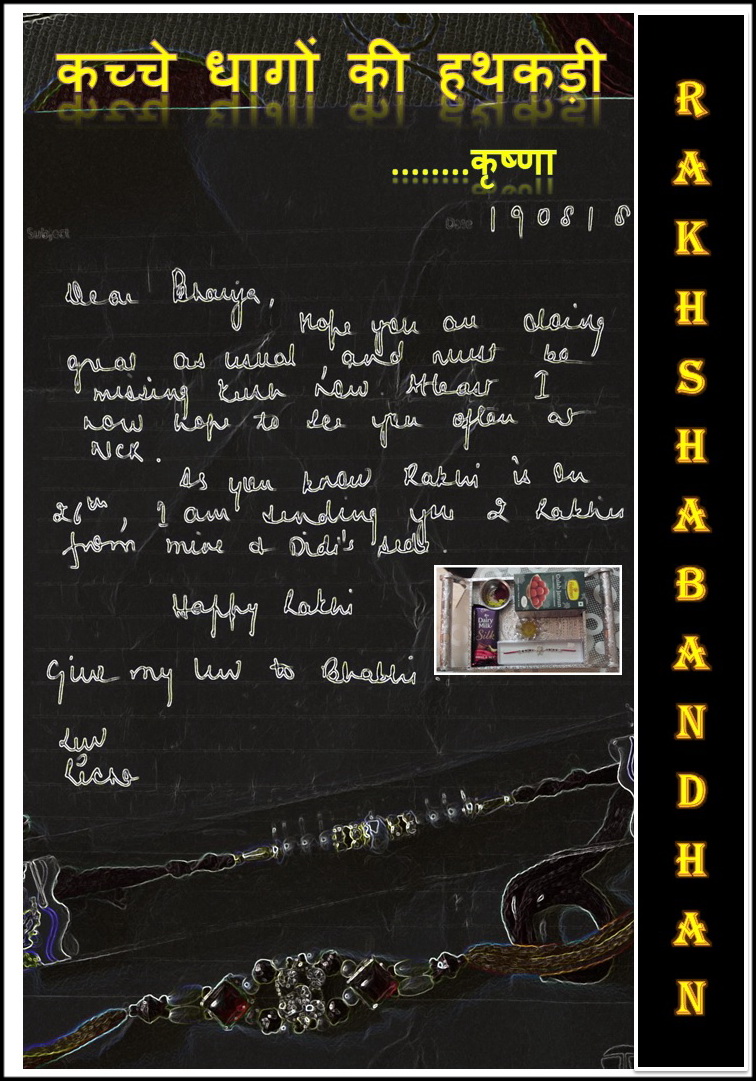 कच्चे धागों की हथकड़ी
........कृष्णा
Subject
Date 190818
Dear Bhaiya,
Hope you are doing
great as usual and must be
missing Kush now. Atleast I
now hope to see you often at
NICK.
As you know Rakhi is on
26th, I am sending you 2 Rakhis
from mine & Didi's side.
Happy Rakhi
Give my luv to Bhabhi
Luv
Richa
Dairy
Milk
Silk
RAKHSHABANDHAN